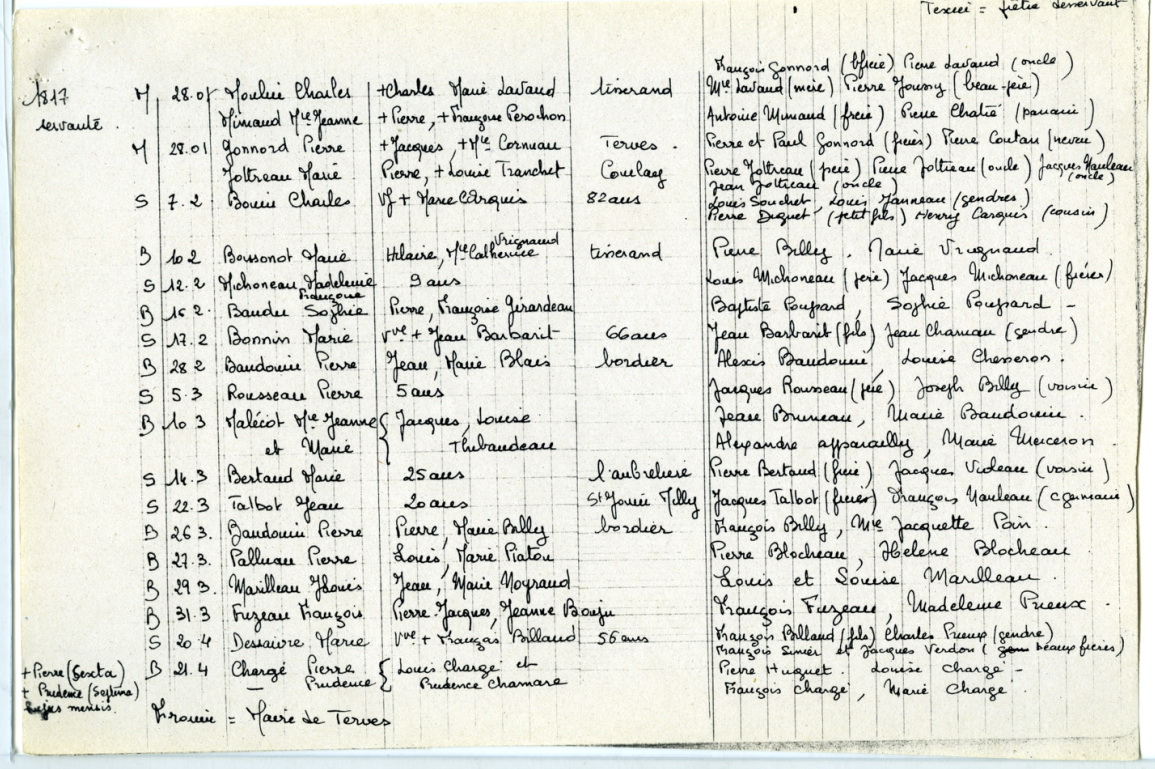 Texier = prêtre desservant
François Gonnord (bfrère) Pierre Lavaud (oncle)
1817 M 28.01 Moulin Charles +Charles Marie Lavaud tisserand Mie Lavaud (mère) Pierre Joussy (beau-père)
servanté. Mimaud Mie Jeanne + Pierre, + Françoise Perochon Antoine Mimaud (frère) Pierre Chatié (parrain)
M 28.01 Gonnord Pierre +Jacques, +Mie Cornuau Terves. Pierre et Paul Gonnord (frères) Pierre Coutan (neveu)
Joltreau Marie Pierre, + Louise Tranchet Coulay Pierre Joltreau (père) Pierre Joltreau (oncle) Jacques Nauleau (oncle)
Jean Joltreau (oncle)
S 7.2 Bouin Charles Vf + Marie Carquis 82 ans Louis Souchet, Louis Janneau (gendres)
Pierre Diguet (petit fils) Henry Carquis (cousin)
B 10 2 Boussonot Marie Hilaire, Mie Catherine Vrignaud tisserand Pierre Billy. Marie Vrignaud.
S 12.2 Michoneau Madeleine 9 ans Louis Michoneau (père) Jacques Michoneau (frère)
Françoise
B 16 2. Baudu Sophie Pierre, Françoise Girardeau Baptiste Poupard, Sophie Poupard -
S 17.2 Bonnin Marie Vve + Jean Barbarit 66 ans Jean Barbarit (fils) Jean Charuau (gendre)
B 28 2 Baudouin Pierre Jean, Marie Blais bordier Alexis Baudouin, Louise Chesseron.
S 5.3 Rousseau Pierre 5 ans Jacques Rousseau (père) Joseph Billy (voisin)
B 10 3 Malécot Mie Jeanne { Jacques, Louise Jean Bruneau, Marie Baudouin.
et Marie Thibaudeau Alexandre apparailly, Marie Merceron.
S 14.3 Bertaud Marie 25 ans l'aubrelière Pierre Bertaud (frère) Jacques Videau (voisin)
S 22.3 Talbot Jean 20 ans St Jouin Milly Jacques Talbot (frère) François Nauleau (c germain)
B 26 3. Baudouin Pierre Pierre, Marie Billy bordier François Billy, Mie Jacquette Poin.
B 27.3. Palluau Pierre Louis, Marie Piatou Pierre Blocheau, Hélène Blocheau
B 29 3 Marilleau JLouis Jean, Marie Noyraud Louis et Louise Marilleau.
B 31.3 Fuzeau François Pierre-Jacques, Jeanne Bouju François Fuzeau, Madeleine Prieux.
S 20.4 Dessaivre Marie Vve + François Billaud 56 ans François Billaud (fils) Charles Prieux (gendre)
François Simér et Jacques Verdon (beaux frères)
+ Pierre (Sexta) B 21.4 Chargé Pierre { Louis Chargé et Pierre Huguet. Louise chargé -
+ Prudence (Septima) — Prudence Prudence Chamare François chargé, Marie Chargé
hujus mensis.
Fromin = Maire de Terves